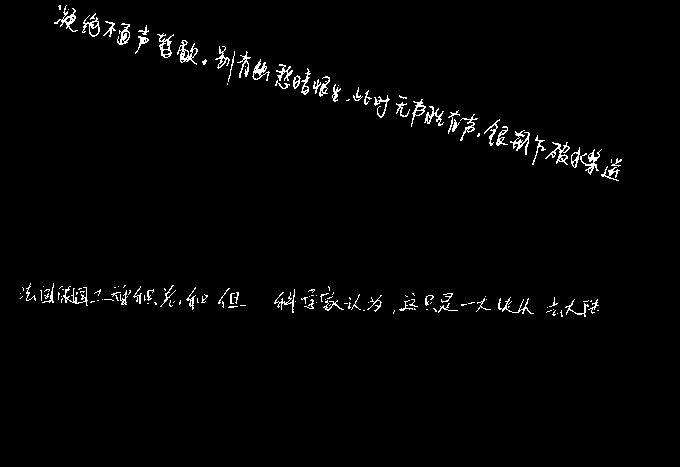 凝绝不通声暂歇。别有幽愁暗恨生.此时无声胜有声.银瓶乍破水浆迸
法国德国工 积总.和但 科学家认为,这只是一大块从 大陆